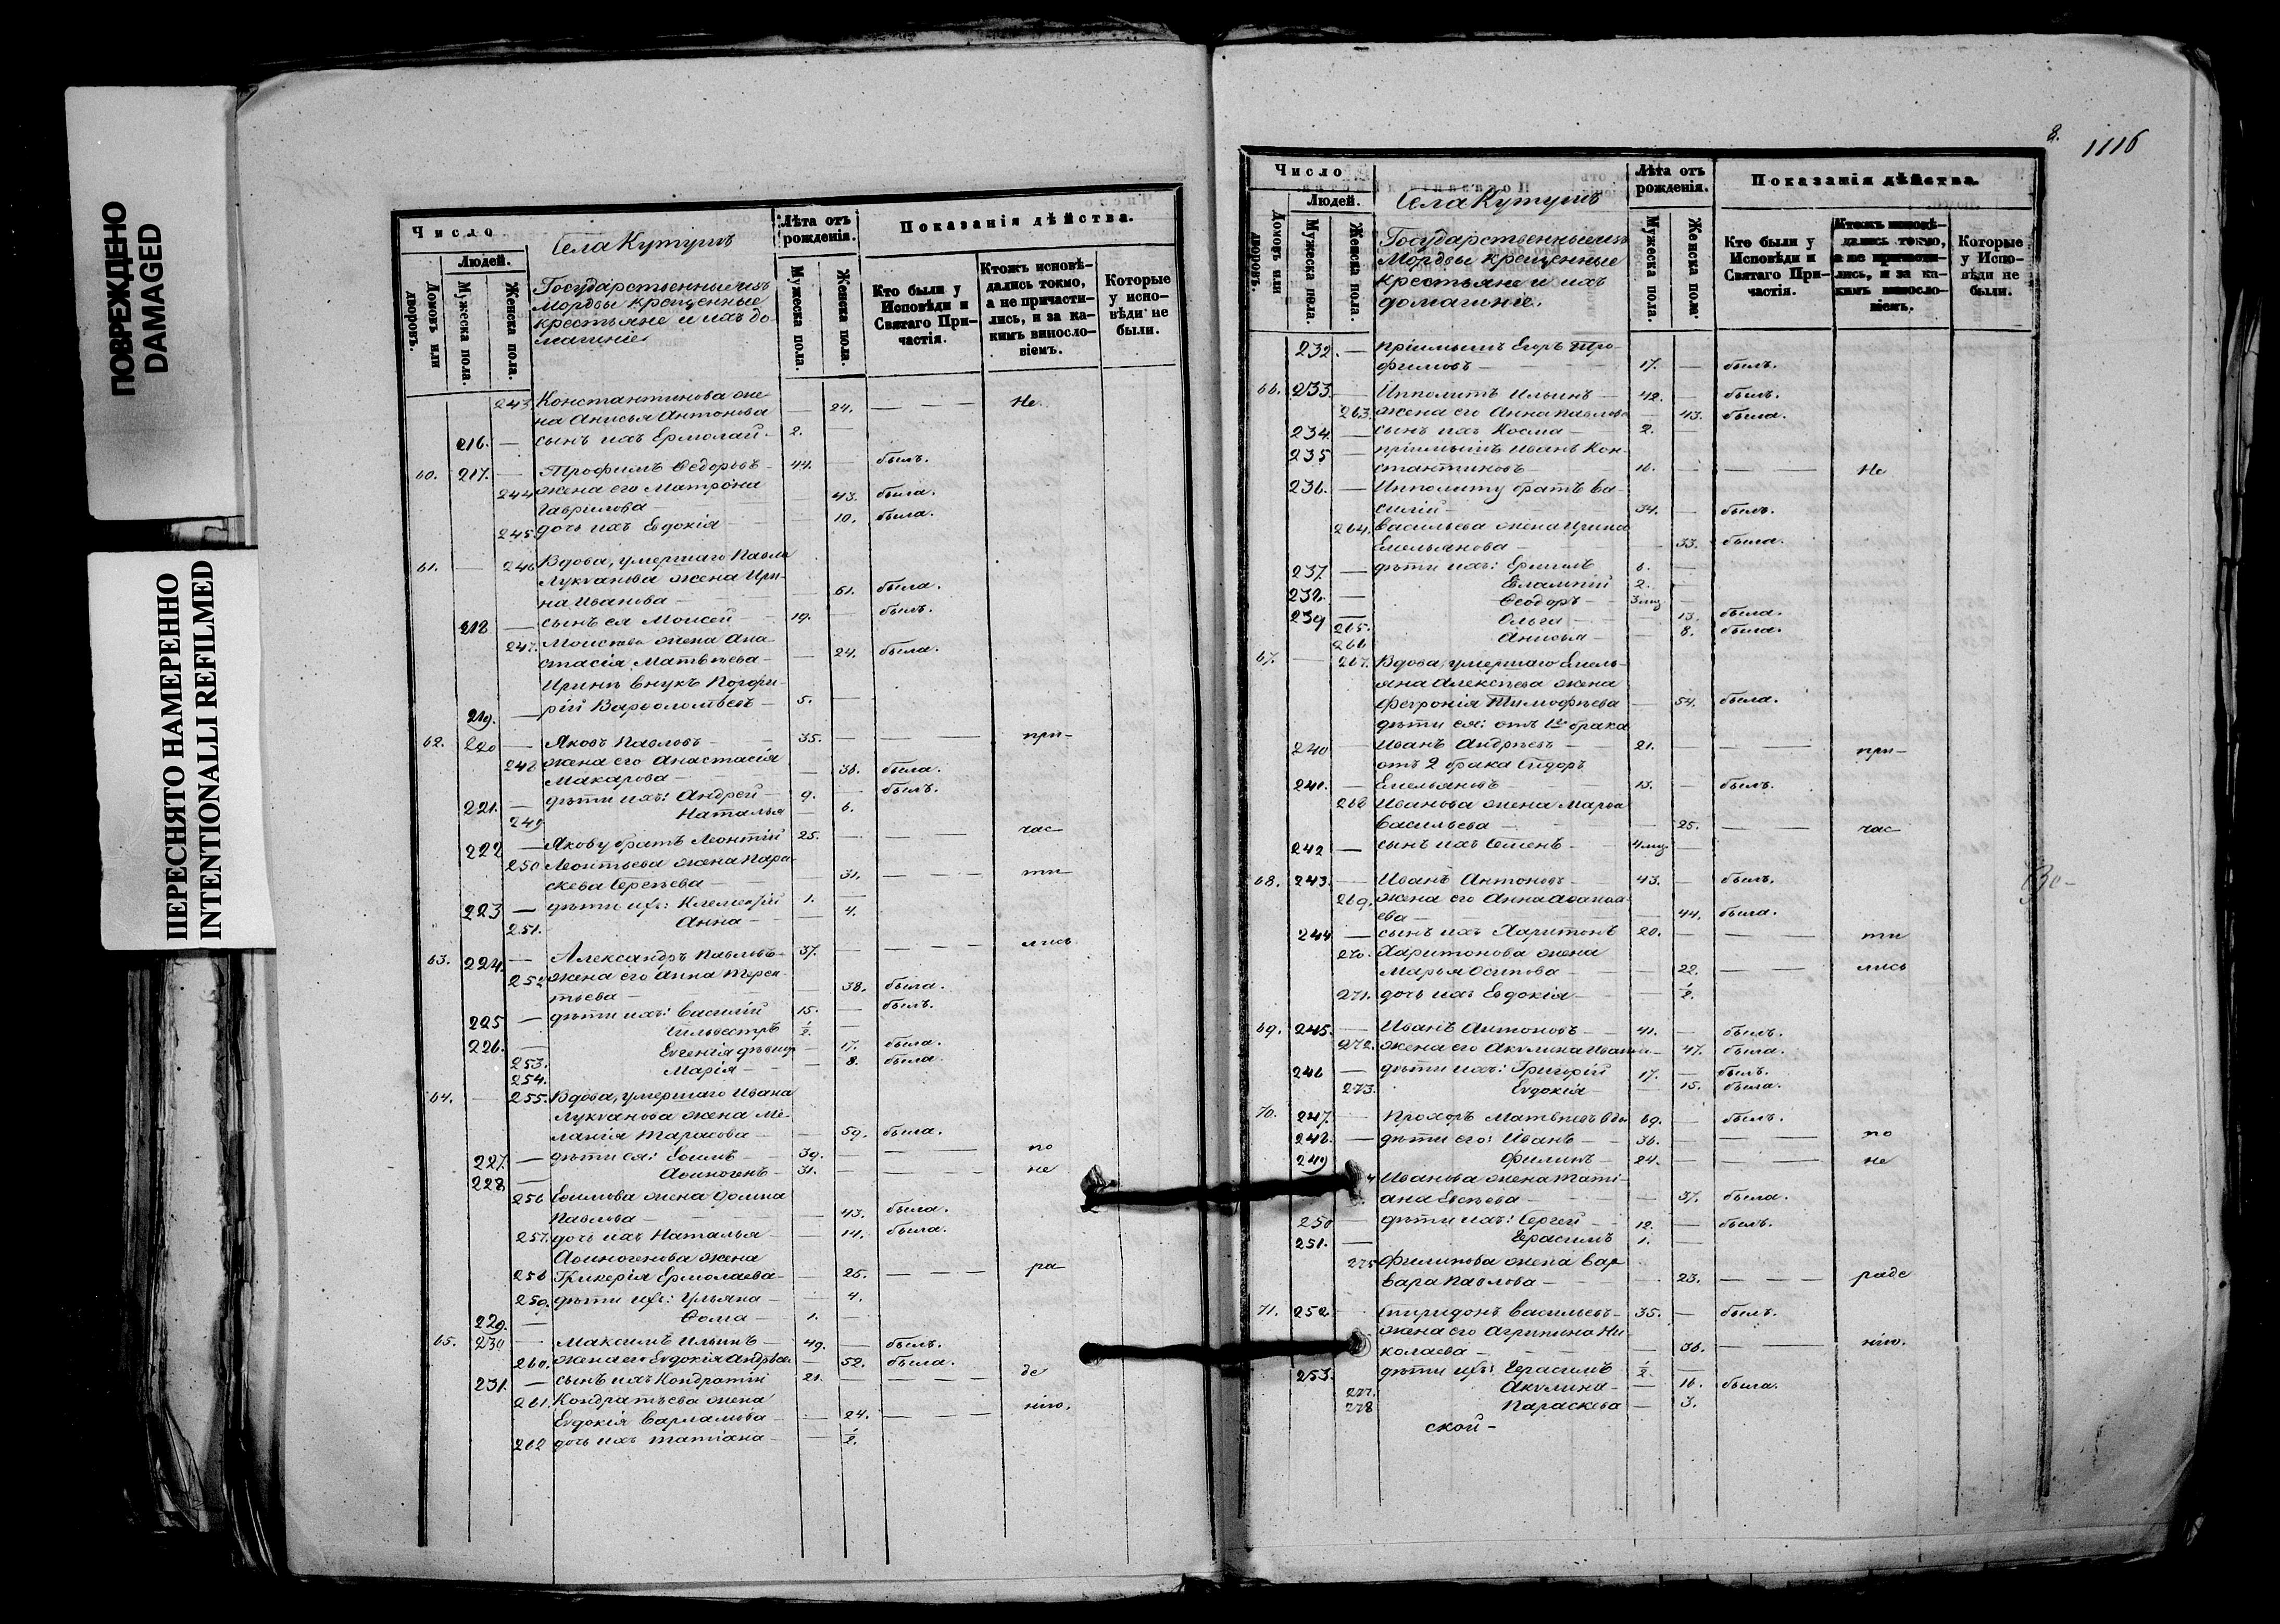 ПОВРЕЖДЕНО
DAMAGED
ПЕРЕСНЯТО НАМЕРЕННО
INTENTIONALLI REFILMED
Число
Людей.
Домовъ или дворовъ.
Мужеска пола.
Женска пола.
Села Кутушъ
Государственные изъ
Мордвы крещенные
крестьяне и ихъ до-
машніе
Лѣта отъ рожденія.
Мужеска пола.
Женска пола.
Показанія дѣйства.
Кто были у Исповѣди и Святаго Причастія.
Ктожъ исповѣдались токмо, а не причастились, и за какимъ винословіемъ.
Которые у исповѣди не были.
243 Константинова же-
на Анисья Антонова — 24. — — — Не
216. — сынъ ихъ Ермолай 2. —
60. 217. — Трофимъ Ѳедоровъ 44. — былъ.
244 жена его Матрона
Гаврилова — 43. была.
245. дочь ихъ Евдокія — 10. была.
61. — 246 Вдова, умершаго Павла
Лукианова жена Ири-
на Иванова — 61. была.
218 — сынъ ея Моисей 19. — былъ.
247. Моисеева жена Ана-
стасія Матвѣева — 24. была.
Иринѣ внукъ Порфи-
219. — рій Варѳоломѣевъ — 5. —
62. 220 — Яковъ Павловъ — 35. — — — при-
248 жена его Анастасія
Макарова — 36. была.
221. — дѣти ихъ: Андрей — 9. — былъ.
249 Наталья — 6.
222 — Якову братъ Леонтій 25. — — — час
250 Леонтьева жена Пара-
скева Сергѣева — 31. — — — ти
223 — дѣти ихъ: Климентій 1. —
251. Анна — 4.
63. 224. — Александръ Павловъ 37. — — — лись
252 жена его Анна Терен-
тьева — 38. была.
225 — дѣти ихъ: Василій 15. — былъ.
226. — Сильвестръ ½ —
253. Евгенія дѣвица — 17. была.
254. Марія — 8. была
64. — 255. Вдова, умершаго Ивана
Лукианова жена Ме-
ланія Тарасова — 59. была.
227. — дѣти ея: Еѳимъ — 39. — — по
228. — Аѳиногенъ — 31. — — — не
256 Еѳимова жена Домна
Павлова — 43. была.
257. дочь ихъ Наталья — 14. была.
Аѳиногенова жена
258 Гликерія Ермолаева — 25. — — — ра
259. дѣти ихъ: Ульяна — 4.
229. — Ѳома — 1. —
65. 230 — Максимъ Ильинъ — 49. — былъ.
260. жена его Евдокія Андрѣева — 52. была.
231. — сынъ ихъ Кондратій 21. — — — де
261. Кондратьева жена
Евдокія Варламова — 24. — — — нію.
262 дочь ихъ Татіана — ½.
8. 1116
Число
Людей.
Домовъ или дворовъ.
Мужеска пола.
Женска пола.
Села Кутушъ
Государственные изъ
Мордвы крещенные
крестьяне и ихъ
домашніе.
Лѣта отъ рожденія.
Мужеска пола.
Женска пола.
Показанія дѣйства.
Кто были у Исповѣди и Святаго Причастія.
Ктожъ исповѣдались токмо, а не причастились, и за какимъ винословіемъ.
Которые у Исповѣди не были.
232. — пріимышъ Егоръ Тро-
фимовъ — 17. — былъ.
66. 233. — Ипполитъ Ильинъ — 42. — былъ.
263. жена его Анна Павлова — 43. была.
234. — сынъ ихъ Косма — 2. —
235 — пріимышъ Иванъ Кон-
стантиновъ — 16. — — — Не
236. — Ипполиту братъ Ва-
силій — 34. — былъ.
264. Васильева жена Ирина
Емельянова — 33. была.
237. — дѣти ихъ: Ермилъ 6. —
238. — Евлампій 2. —
239 — Ѳеодоръ — 3 мц
265. Ольга — 13. была.
266 Анисья — 8. была.
67. — 267. Вдова, умершаго Емель-
яна Алексѣева жена
Февронія Тимофѣева — 54. была.
дѣти ея: отъ 1го брака
240 — Иванъ Андрѣевъ — 21. — — — при-
отъ 2 брака Сидоръ
241. — Емельяновъ — 13. — былъ.
268 Иванова жена Марѳа
Васильева — 25. — — час
242 — сынъ ихъ Семенъ — 4 мц —
68. 243. — Иванъ Антоновъ — 43. — былъ.
269. жена его Анна Аѳанась-
ева — 44. была.
244 — сынъ ихъ Харитонъ 20. — — — ти
270. Харитонова жена
Марья Осипова — 22. — — лись
271. дочь ихъ Евдокія — ½.
69. 245. — Иванъ Антоновъ — 41. — былъ.
272. жена его Акулина Иванова — 47. была.
246 — дѣти ихъ: Григорій 17. — былъ.
273. Евдокія — 15. была.
70. 247. — Прохоръ Матвѣевъ вдв 69. — былъ.
248. — дѣти его: Иванъ — 36. — — — по
249 Филипъ — 24. — — — не
4 Иванова жена Тати-
ана Евсѣева — 37. была.
250 — дѣти ихъ: Сергей — 12. — былъ.
251. — Герасимъ 1. —
275 Филипова жена Вар-
вара Павлова — 23. — — — раде
71. 252 — Спиридонъ Васильевъ — 35. — былъ.
жена его Агрипина Ни-
колаева — 36. — — нію.
253. дѣти ихъ: Герасимъ ½. —
277. Акулина — 16. была.
278 Параскева — 3.
ской —